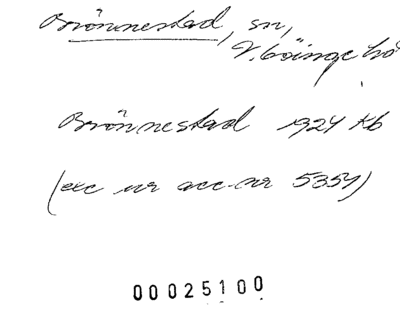 Brönnestad, sn,
V. Göinge hd
Brönnestad 1924 Kb
(exc ur acc.nr 5354)
00025100